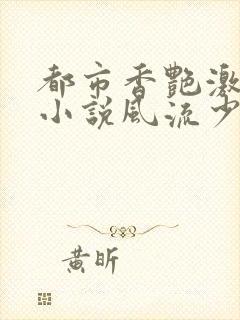 都市香艷激
小説風流少
黄昕